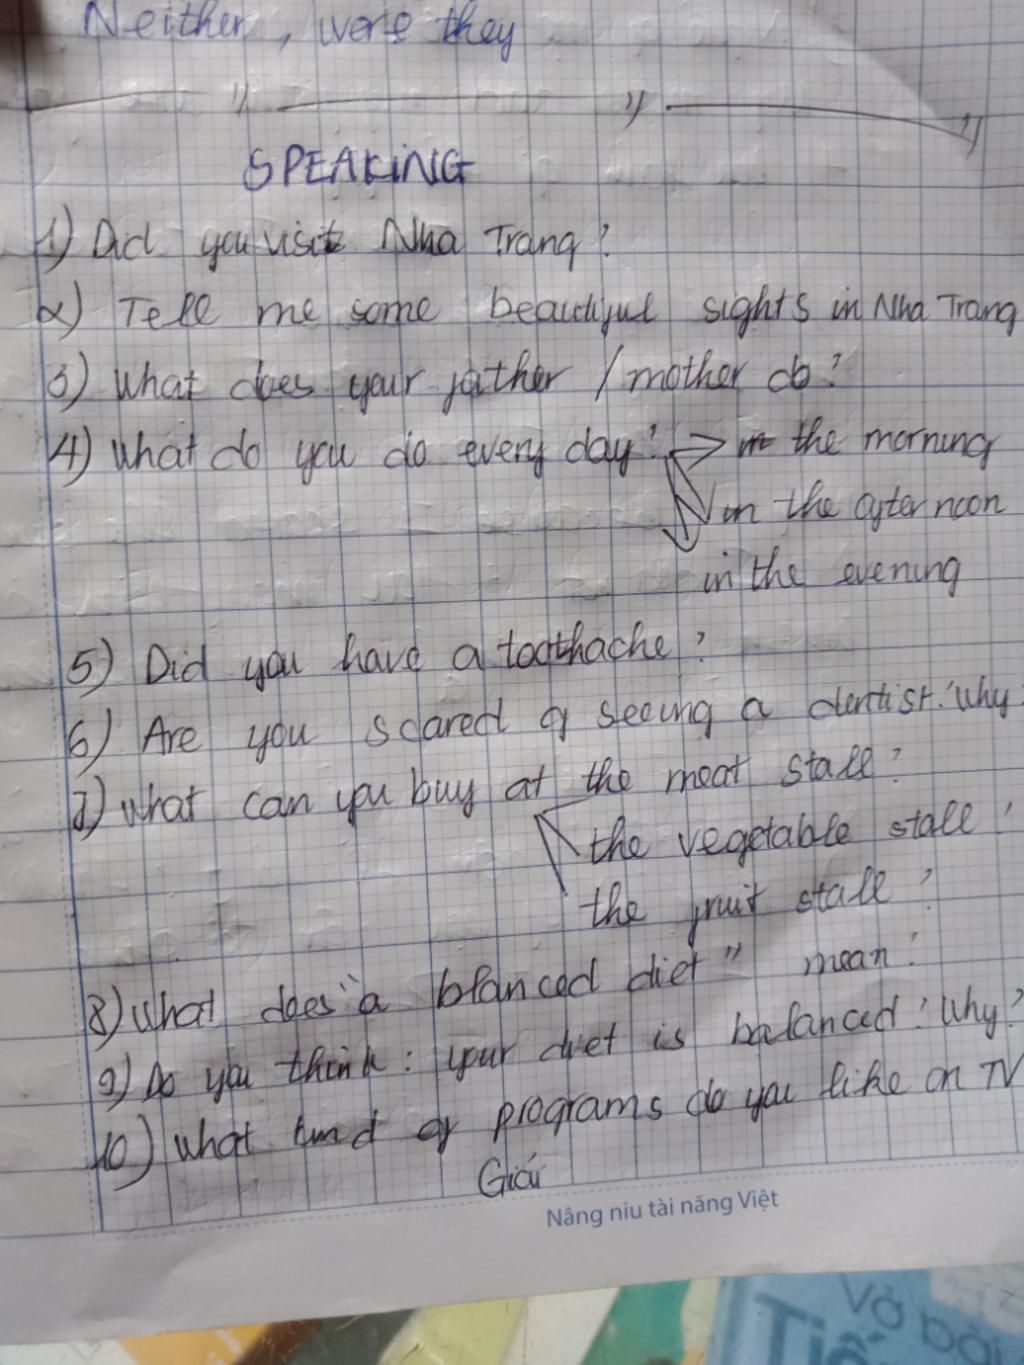 Neither, were they
SPEAKING
1) Did you visit Nha Trang?
2) Tell me some beautiful sights in Nha Trang
3) What does your father / mother do?
4) What do you do every day? in the morning
in the afternoon
in the evening
5) Did you have a toothache?
6) Are you scared of seeing a dentist? Why?
7) What can you buy at the meat stall?
the vegetable stall?
the fruit stall?
8) What does "a blanced diet" mean?
9) Do you think: your diet is balanced? Why?
10) What kind of programs do you like on TV
Giải
Nâng niu tài năng Việt
Vở bài
Tiế